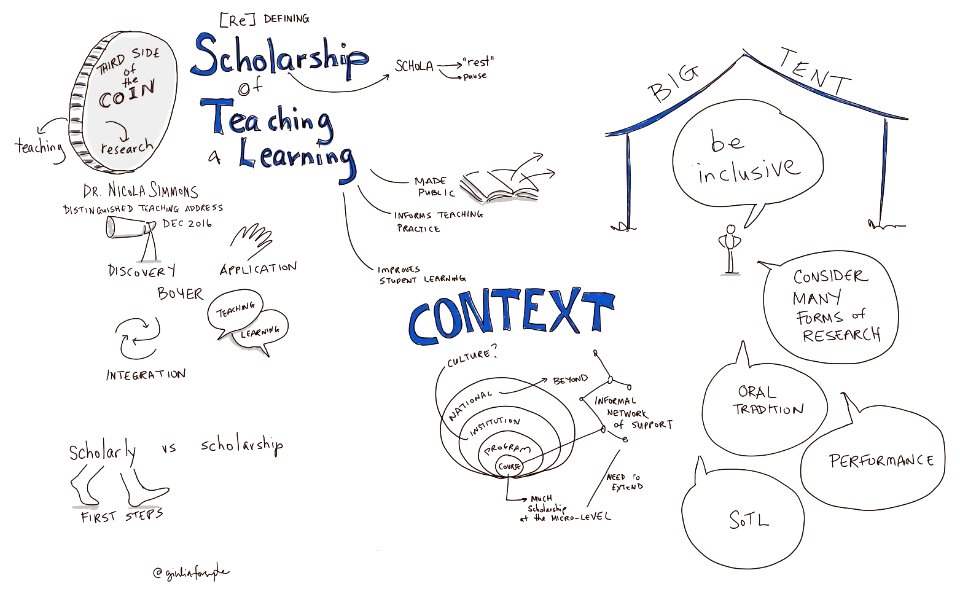 [Re] DEFINING
Scholarship
of
Teaching
a Learning
SCHOLA
"rest"
pause
THIRD SIDE
of
the
COIN
teaching
research
DR. NICOLA SIMMONS
DISTINGUISHED TEACHING ADDRESS
DEC 2016
MADE
PUBLIC
INFORMS TEACHING
PRACTICE
IMPROVES
STUDENT LEARNING
DISCOVERY
APPLICATION
BOYER
TEACHING
LEARNING
INTEGRATION
Scholarly vs scholarship
FIRST STEPS
CONTEXT
CULTURE?
NATIONAL
BEYOND
INSTITUTION
PROGRAM
COURSE
INFORMAL
NETWORK
of SUPPORT
NEED to
EXTEND
MUCH
Scholarship
at the MICRO-LEVEL
BIG TENT
be
inclusive
CONSIDER
MANY
FORMS of
RESEARCH
ORAL
TRADITION
PERFORMANCE
SoTL